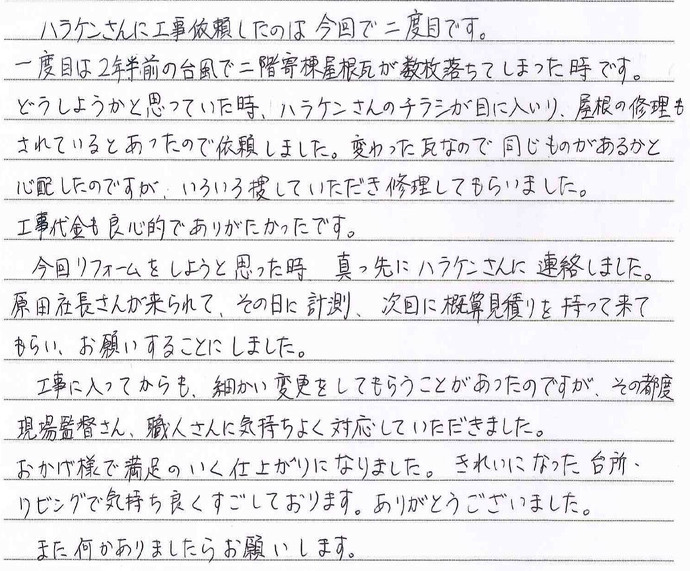 ハラケンさんに工事依頼したのは今回で二度目です。
一度目は2年半前の台風で二階寄棟屋根瓦が数枚落ちてしまった時です。
どうしようかと思っていた時、ハラケンさんのチラシが目に入いり、屋根の修理も
されているとあったので依頼しました。変わった瓦なので同じものがあるかと
心配したのですが、いろいろ捜していただき修理してもらいました。
工事代金も良心的でありがたかったです。
今回リフォームをしようと思った時 真っ先にハラケンさんに連絡しました。
原田社長さんが来られて、その日に計測、次回に概算見積りを持って来て
もらい、お願いすることにしました。
工事に入ってからも、細かい変更をしてもらうことがあったのですが、その都度
現場監督さん、職人さんに気持ちよく対応していただきました。
おかげ様で満足のいく仕上がりになりました。きれいになった台所・
リビングで気持ち良くすごしております。ありがとうございました。
また何かありましたらお願いします。